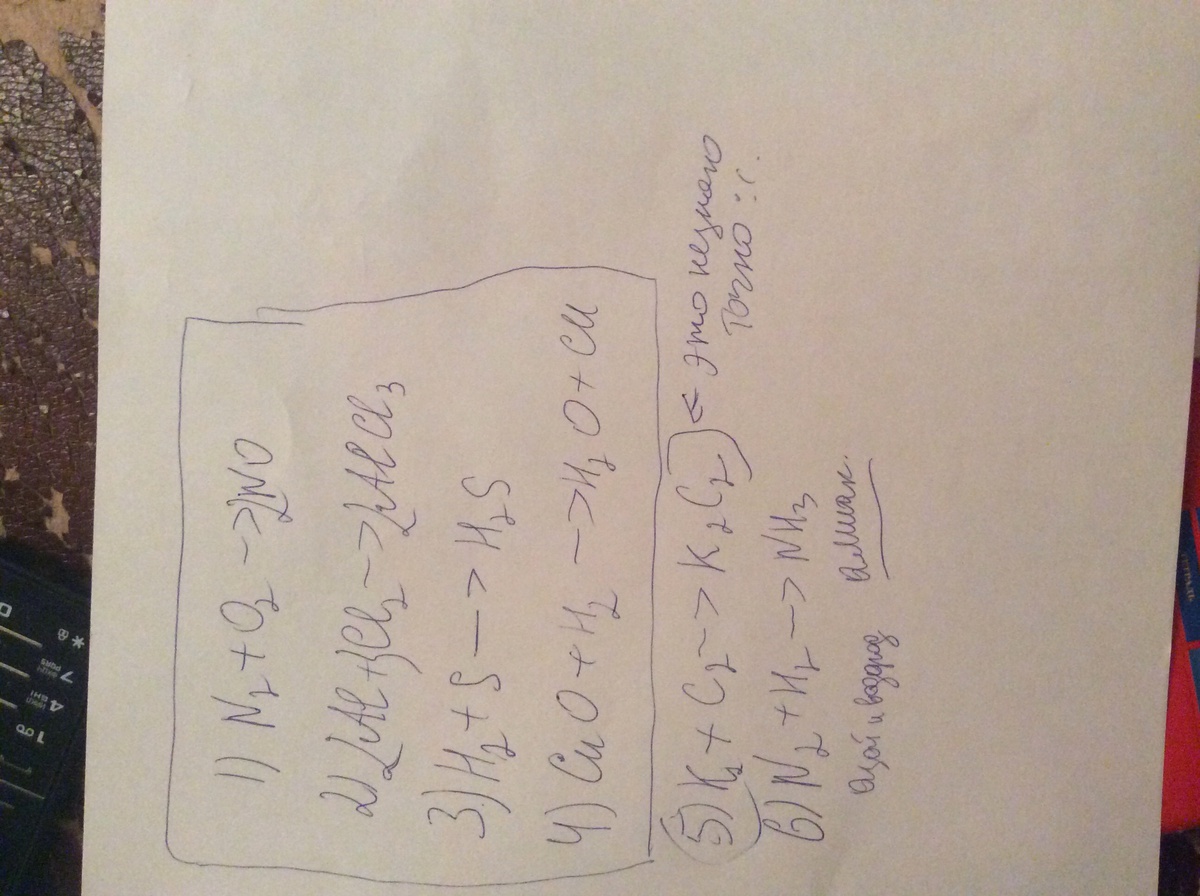 1) N₂ + O₂ —> 2NO
2) 2Al + 3Cl₂ —> 2AlCl₃
3) H₂ + S —> H₂S
4) CuO + H₂ —> H₂O + Cu
5) K₂ + C₂ —> K₂C₂ <- это незнаю
точно :(.
6) N₂ + H₂ —> NH₃
азот и водород аммиак.
1
4 GHI
7 PQRS
*